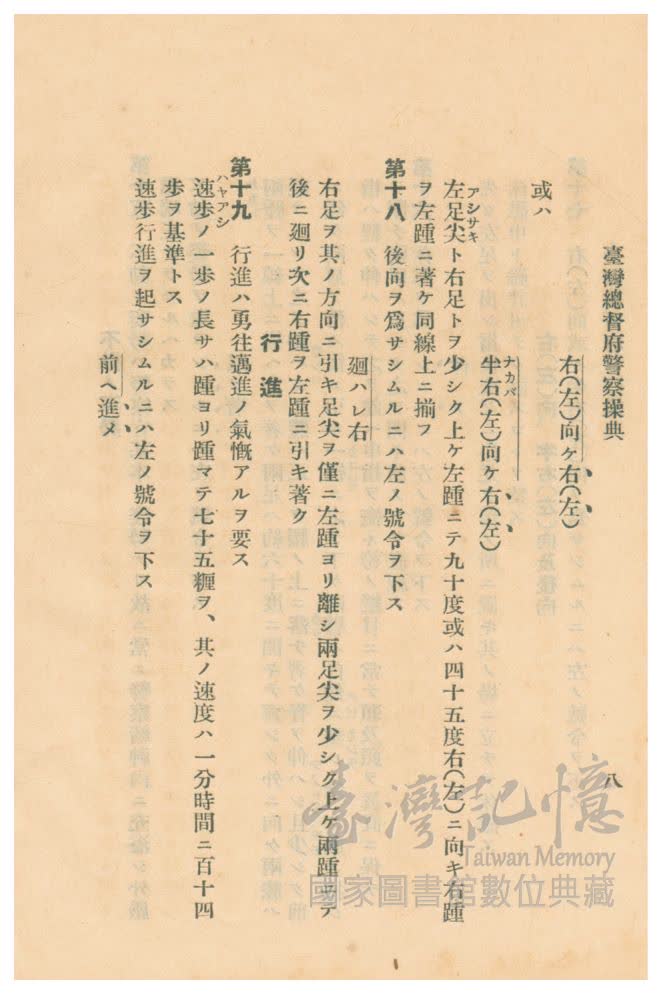 臺灣總督府警察操典
八
右(左)向ケ右(左)
或ハ
半右(左)向ケ右(左)
ナカバ
左足尖ト右足トヲ少シク上ケ左踵ニテ九十度或ハ四十五度右(左)ニ向キ右踵
アシサキ
ヲ左踵ニ著ケ同線上ニ揃フ
第十八 後向ヲ爲サシムルニハ左ノ號令ヲ下ス
廻ハレ右
右足ヲ其ノ方向ニ引キ足尖ヲ僅ニ左踵ヨリ離シ兩足尖ヲ少シク上ケ兩踵ニテ
後ニ廻リ次ニ右踵ヲ左踵ニ引キ著ク
行進
第十九 行進ハ勇往邁進ノ氣慨アルヲ要ス
速步ノ一步ノ長サハ踵ヨリ踵マテ七十五糎ヲ、其ノ速度ハ一分時間ニ百十四
ハヤアシ
步ヲ基準トス
速步行進ヲ起サシムルニハ左ノ號令ヲ下ス
前ヘ進メ
臺灣記憶
Taiwan Memory
國家圖書館數位典藏